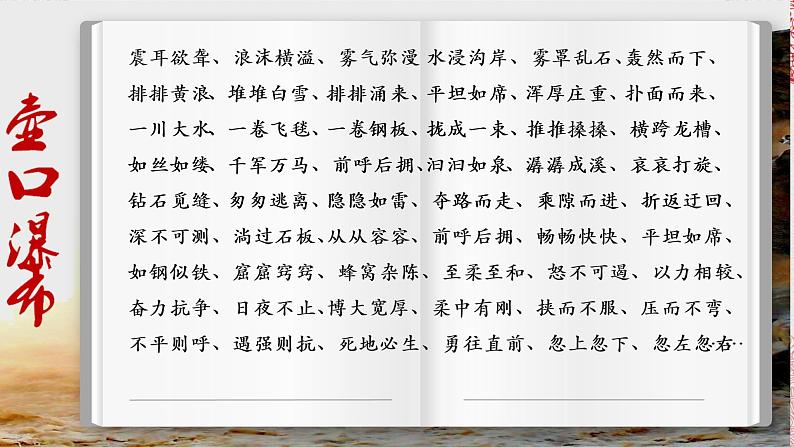 壶口瀑布
震耳欲聋、浪沫横溢、雾气弥漫 水浸沟岸、雾罩乱石、轰然而下、
排排黄浪、堆堆白雪、排排涌来、平坦如席、浑厚庄重、扑面而来、
一川大水、一卷飞毯、一卷钢板、拢成一束、推推搡搡、横跨龙槽、
如丝如缕、千军万马、前呼后拥、汩汩如泉、潺潺成溪、哀哀打旋、
钻石觅缝、匆匆逃离、隐隐如雷、夺路而走、乘隙而进、折返迂回、
深不可测、淌过石板、从从容容、前呼后拥、畅畅快快、平坦如席、
如钢似铁、窟窟窍窍、蜂窝杂陈、至柔至和、怒不可遏、以力相较、
奋力抗争、日夜不止、博大宽厚、柔中有刚、挟而不服、压而不弯、
不平则呼、遇强则抗、死地必生、勇往直前、忽上忽下、忽左忽右……